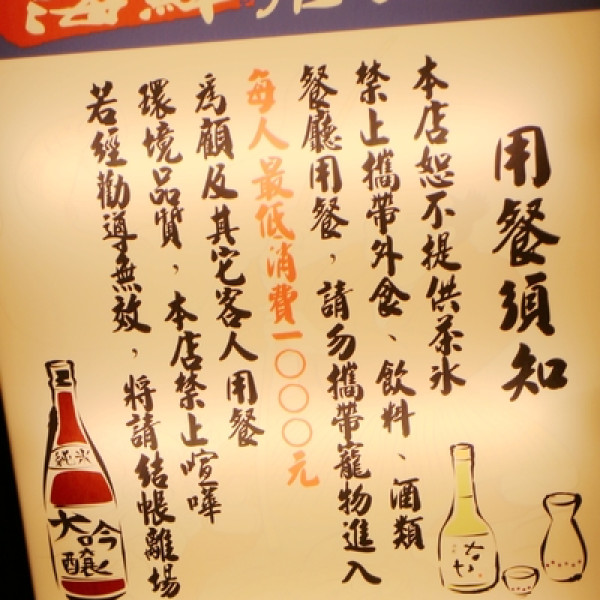 海鮮
用餐須知
本店恕不提供茶水
禁止攜帶外食、飲料、酒類
餐廳用餐，請勿攜帶寵物進入
每人最低消費一〇〇〇元
為顧及其它客人用餐
環境品質，本店禁止喧嘩
若經勸導無效，將請結帳離場
大吟釀